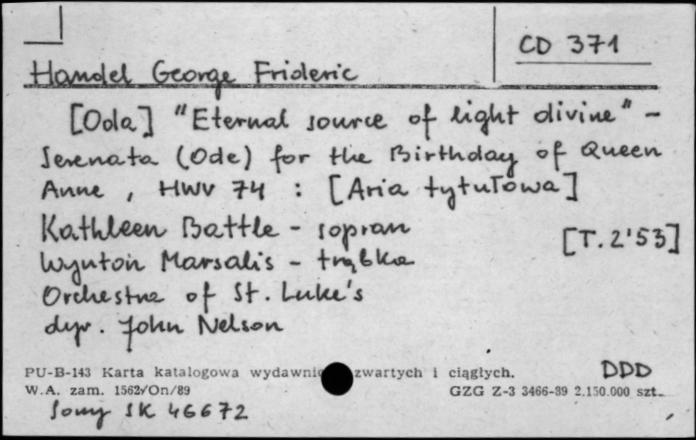 CD 371
Handel George Frideric
[Oda] "Eternal source of light divine" -
Serenata (Ode) for the Birthday of Queen
Anne, HWV 74 : [Aria tytułowa]
Kathleen Battle - sopran
Wynton Marsalis - trąbka [T. 2'53]
Orchestra of St. Luke's
dyr. John Nelson
PU-B-143 Karta katalogowa zwartych i ciągłych. DDD
W.A. zam. 1562/On/89 GZG Z-3 3466-89 2.150.000 szt.
Sony SK 46672